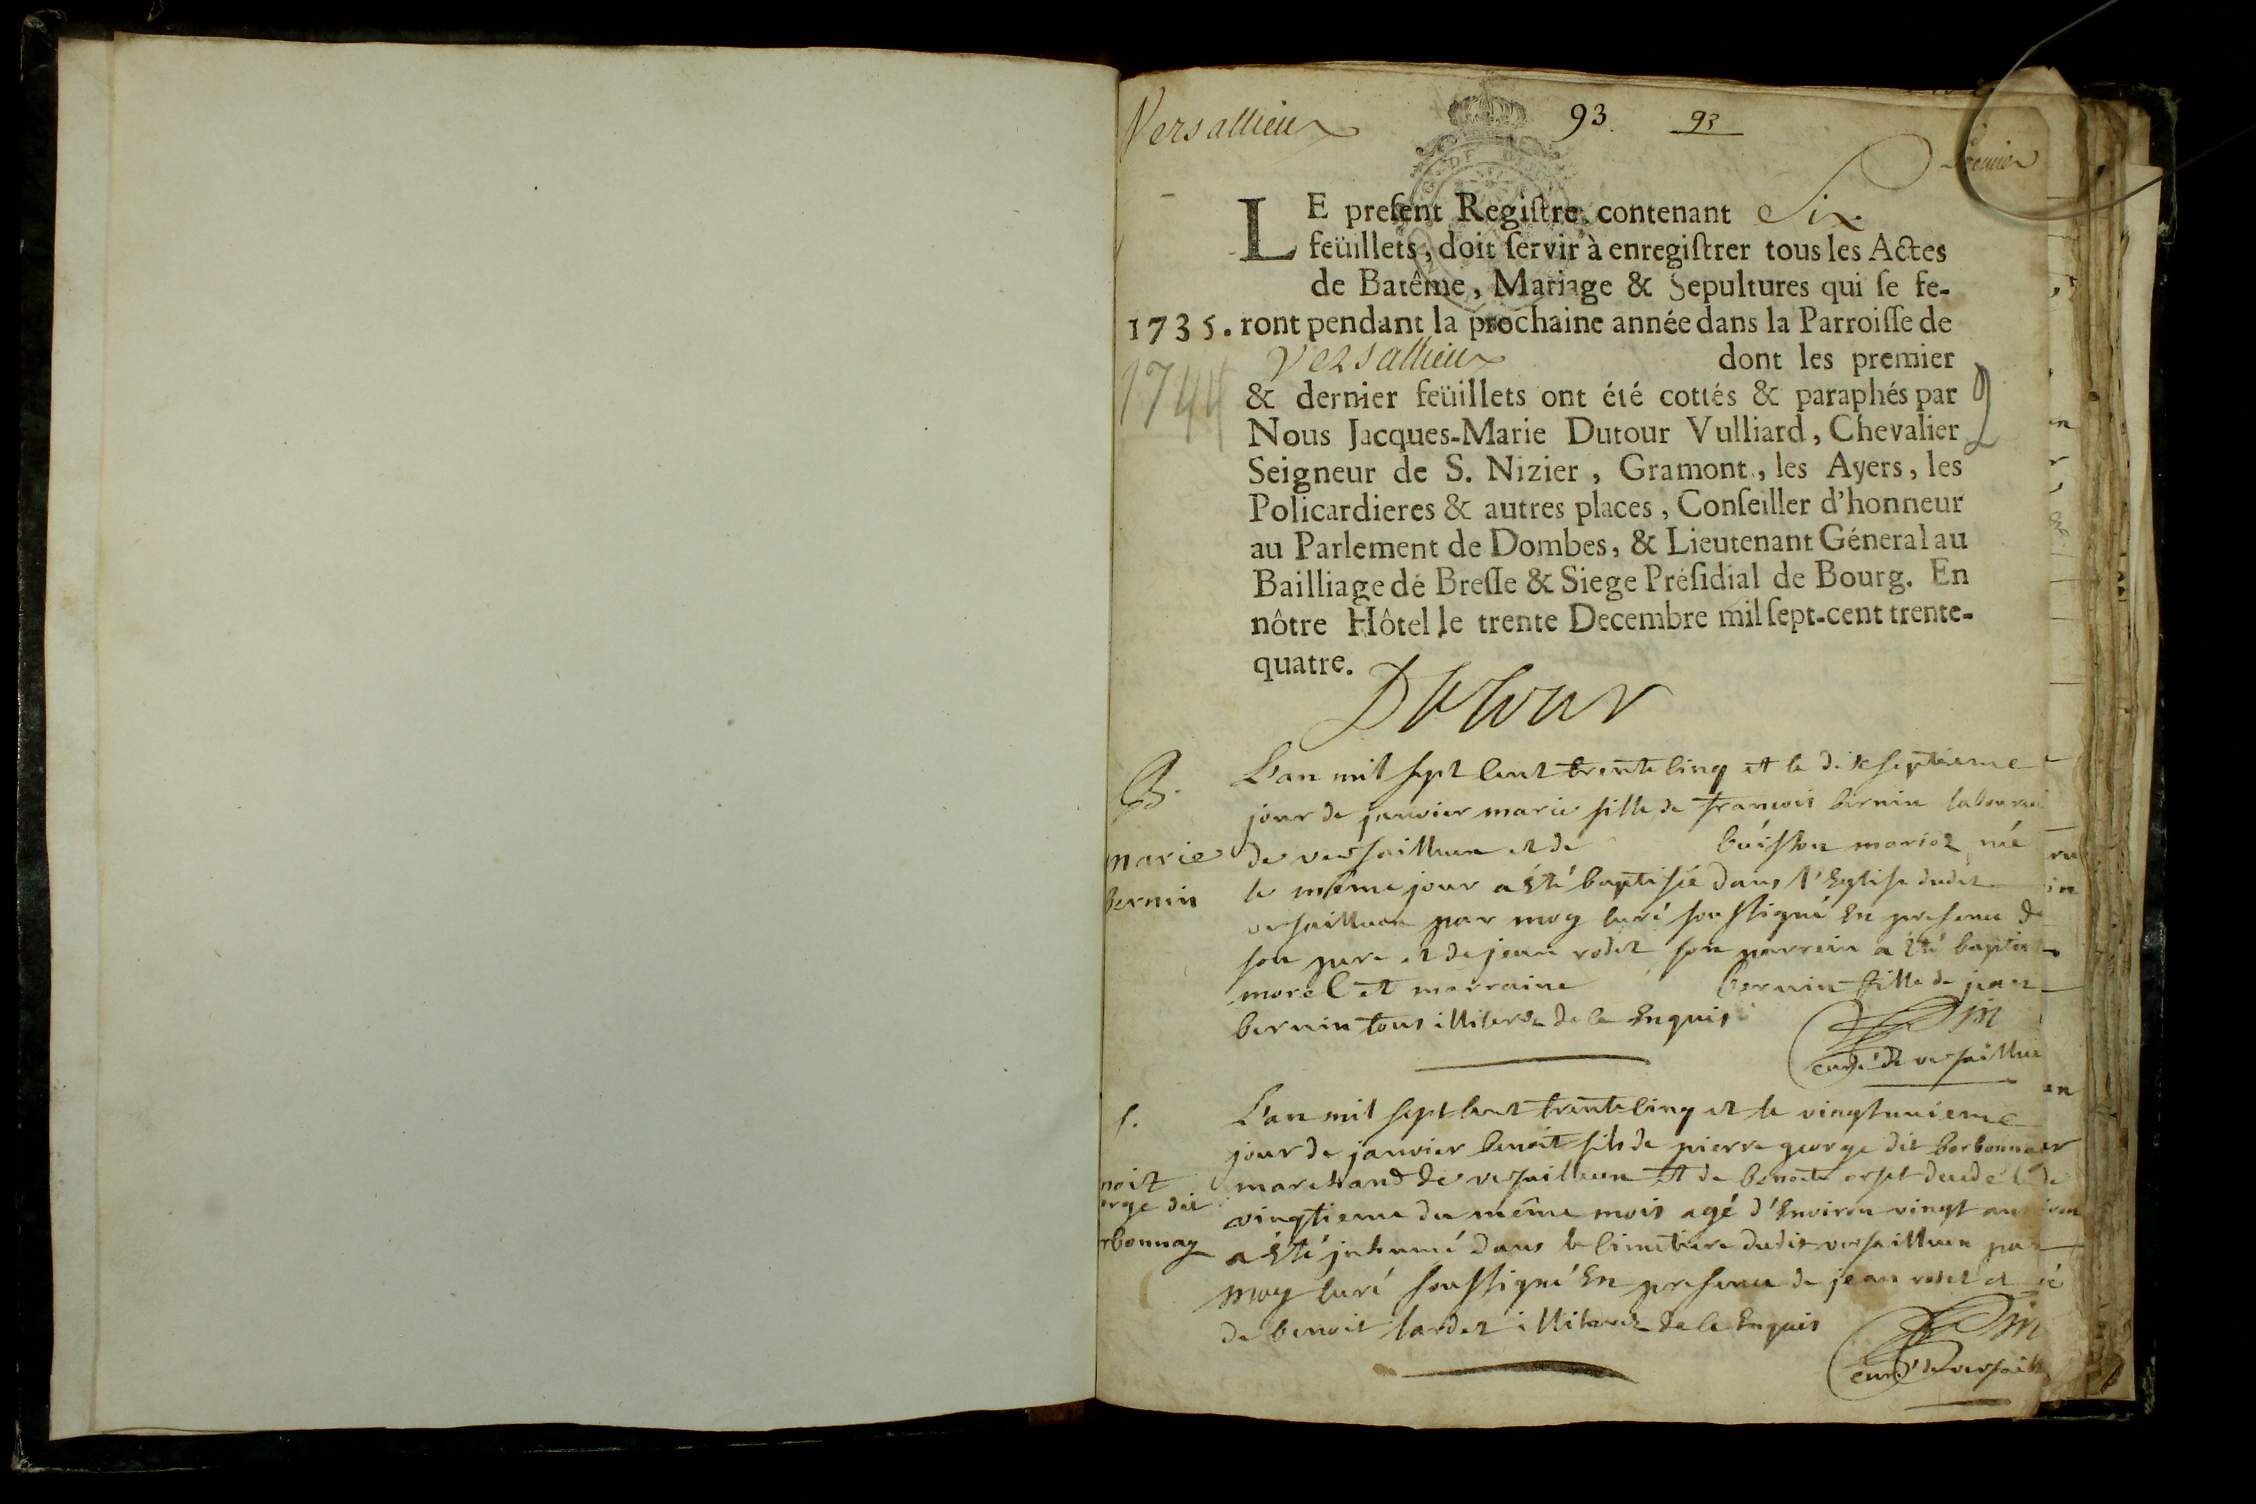 Versallieux 93. 93
Premier
LE preſent Regiſtre, contenant Six
feüillets, doit ſervir à enregiſtrer tous les Actes
de Batême, Mariage & Sepultures qui ſe fe-
1735. ront pendant la prochaine année dans la Parroiſſe de
1744 Versallieux dont les premier
& dernier feüillets ont été cottés & paraphés par
Nous Jacques-Marie Dutour Vulliard, Chevalier
Seigneur de S. Nizier, Gramont, les Ayers, les
Policardieres & autres places, Conſeiller d'honneur
au Parlement de Dombes, & Lieutenant Géneral au
Bailliage dé Breſſe & Siege Préſidial de Bourg. En
nôtre Hôtel le trente Decembre mil ſept-cent trente-
quatre.
Dutour
B. L'an mil sept cent trente cinq et le dixseptieme
jour de janvier marie fille de françois bernin laboureu
marie de versaillieux et de buisson mariez née
bernin le même jour a été baptisée dans l'Eglise dudit
versaillieux par moy curé soussigné En presence de
son pere et de jean rodet son parrein a été baptiste
morel et marraine bernin fille de jean
bernin tous illiterez de ce Enquis
curé de versaillie
s. L'an mil sept cent trente cinq et le vingtunieme
jour de janvier benoit fils de pierre george dit borbonna
noit marchand de versaillieux et de benoite orset decede le
orge dit vingtieme du même mois agé d'Environ vingt an
rbonnay a été jnhumé dans le cimetiere dudit versaillieux par
moy curé soussigné En presence de jean rodet et
de benoit lardet illiterez de ce Enquis
curé de versaill